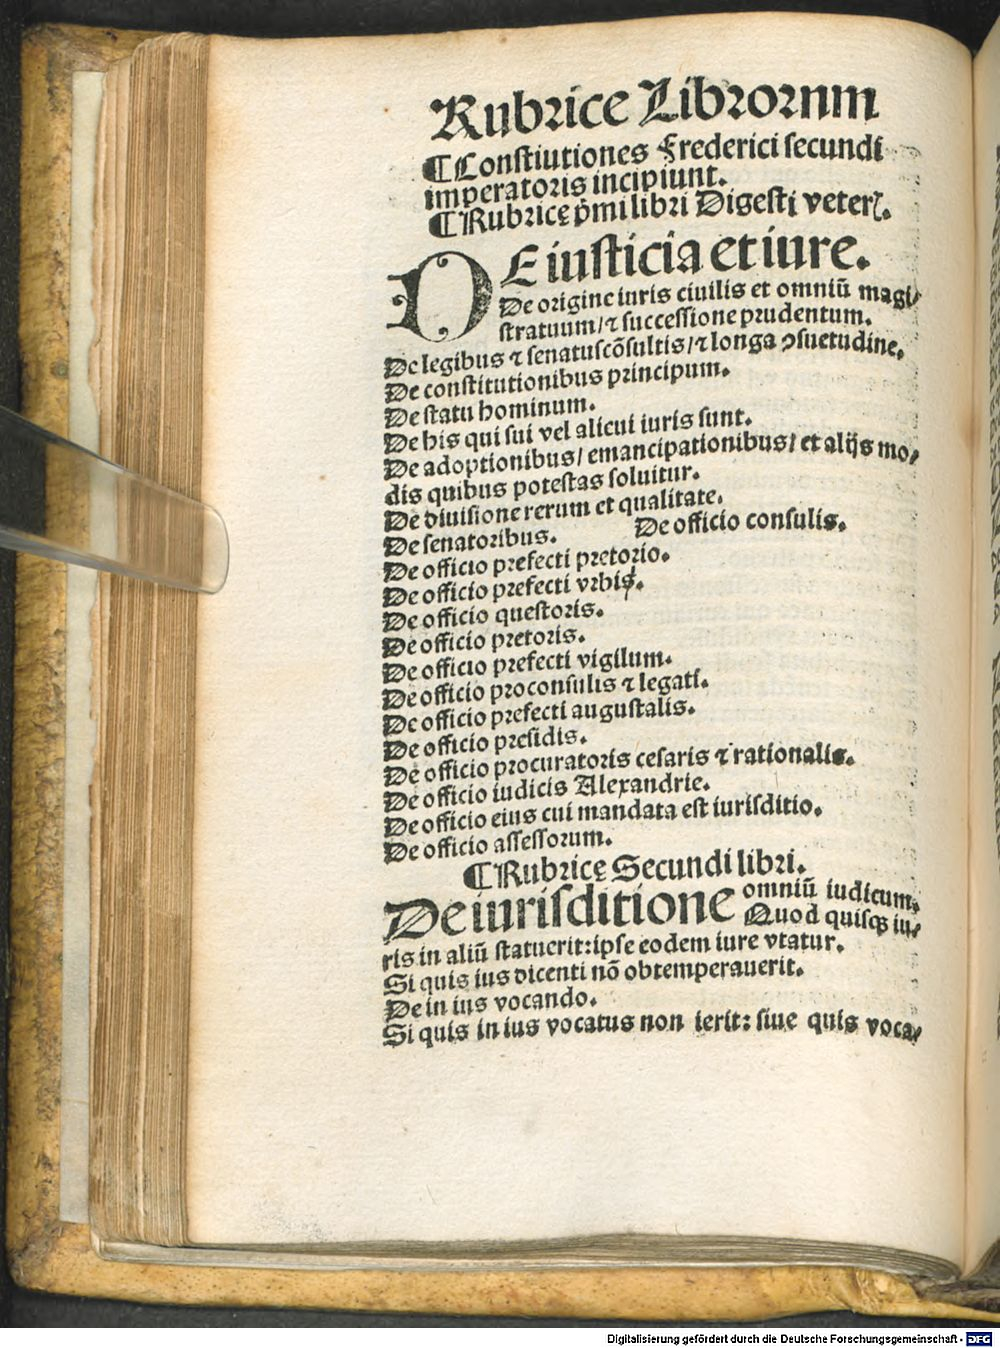 Rubrice Librornm
¶ Constiutiones Frederici secundi
imperatoris incipiunt.
¶ Rubricę p̄mi libri Digesti veterꝭ.
DE iusticia et iure.
De origine iuris ciuilis et omniū magi/
stratuum/ ⁊ successione prudentum.
De legibus ⁊ senatuscōsultis/ ⁊ longa ꝯsuetudine.
De constitutionibus principum.
De statu hominum.
De his qui sui vel alicui iuris sunt.
De adoptionibus/ emancipationibus/ et alijs mo/
dis quibus potestas soluitur.
De diuisione rerum et qualitate.
De senatoribus. De officio consulis.
De officio prefecti pretorio.
De officio prefecti vrbis.
De officio questoris.
De officio pretoris.
De officio prefecti vigilum.
De officio proconsulis ⁊ legati.
De officio prefecti augustalis.
De officio presidis.
De officio procuratoris cesaris ⁊ rationalis.
De officio iudicis Alexandrie.
De officio eius cui mandata est iurisditio.
De officio assessorum.
¶ Rubricę Secundi libri.
De iurisditione omniū iudicum.
Quod quisqꝫ iu/
ris in aliū statuerit: ipse eodem iure vtatur.
Si quis ius dicenti nō obtemperauerit.
De in ius vocando.
Si quis in ius vocatus non ierit: siue quis voca/
Digitalisierung gefördert durch die Deutsche Forschungsgemeinschaft - DFG